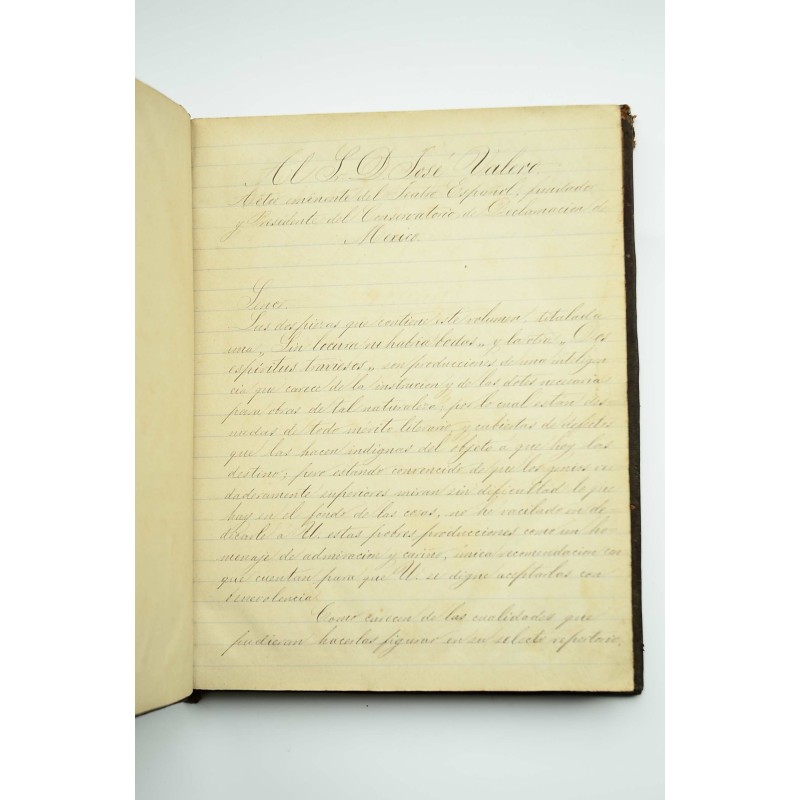 Al S. D. José Valero
Actor eminente del Teatro Español, fundador
y Presidente del Conservatorio de Declamacion de
Mexico.
Señor:
Las dos piezas que contiene este volumen, titulada
una "Sin locura no habria bodas" y la otra "Dos
espíritus traviesos" son producciones de una inteligen
cia que carece de la instruccion y de las dotes necesarias
para obras de tal naturaleza; por lo cual estan des
nudas de todo mérito literario, y cubiertas de defectos
que las hacen indignas del objeto a que hoy las
destino; pero estando convencido de que los genios ver
daderamente superiores miran sin dificultad lo que
hay en el fondo de las cosas, no he vacilado en de
dicarle a U. estas pobres producciones como un ho
menaje de admiracion y cariño, única recomendacion con
que cuentan para que U. se digne aceptarlas con
benevolencia.
Como carecen de las cualidades que
pudieran hacerlas figurar en su selecto repertorio,